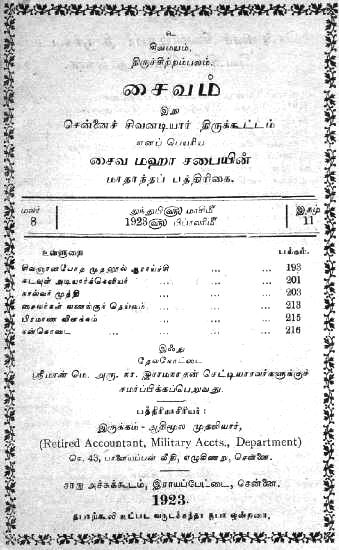 உ
சிவமயம்.
திருச்சிற்றம்பலம்.
சைவம்
இது
சென்னைச் சிவனடியார் திருக்கூட்டம்
எனப் பெயரிய
சைவ மஹா சபையின்
மாதாந்தப் பத்திரிகை.
மலர் 8
துந்துபி௵ மாசி௴
1923௵ பிப்ரவரி௴
இதழ் 11
உள்ளுறை பக்கம்.
சிவஞானபோத முதனூல் ஆராய்ச்சி ... ... 193
கடவுள் அடியார்க்கெளியர் ... ... ... 201
கால்வர் முத்தி ... ... ... 203
சைவர்கள் வணக்குந் தெய்வம் ... ... 213
பிரமாண விளக்கம் ... ... ... 215
நன்கொடை ... ... ... 216
இஃது
தேவகோட்டை
ஸ்ரீமான் மெ. அரு. நா. இராமநாதன் செட்டியாரவர்களுக்குச்
சமர்ப்பிக்கப்பெறுவது.
பத்திராசிரியர் :
இருக்கம் - ஆதிமூல முதலியார்,
(Retired Accountant, Military Accts., Department)
நெ. 43, பாளையப்பன் வீதி, எழுகிணறு, சென்னை.
சாது அச்சுக்கூடம், இராயப்பேட்டை, சென்னை.
1923.
தபாற்கூலி உட்பட வருடச்சந்தா ரூபா ஒன்றரை.